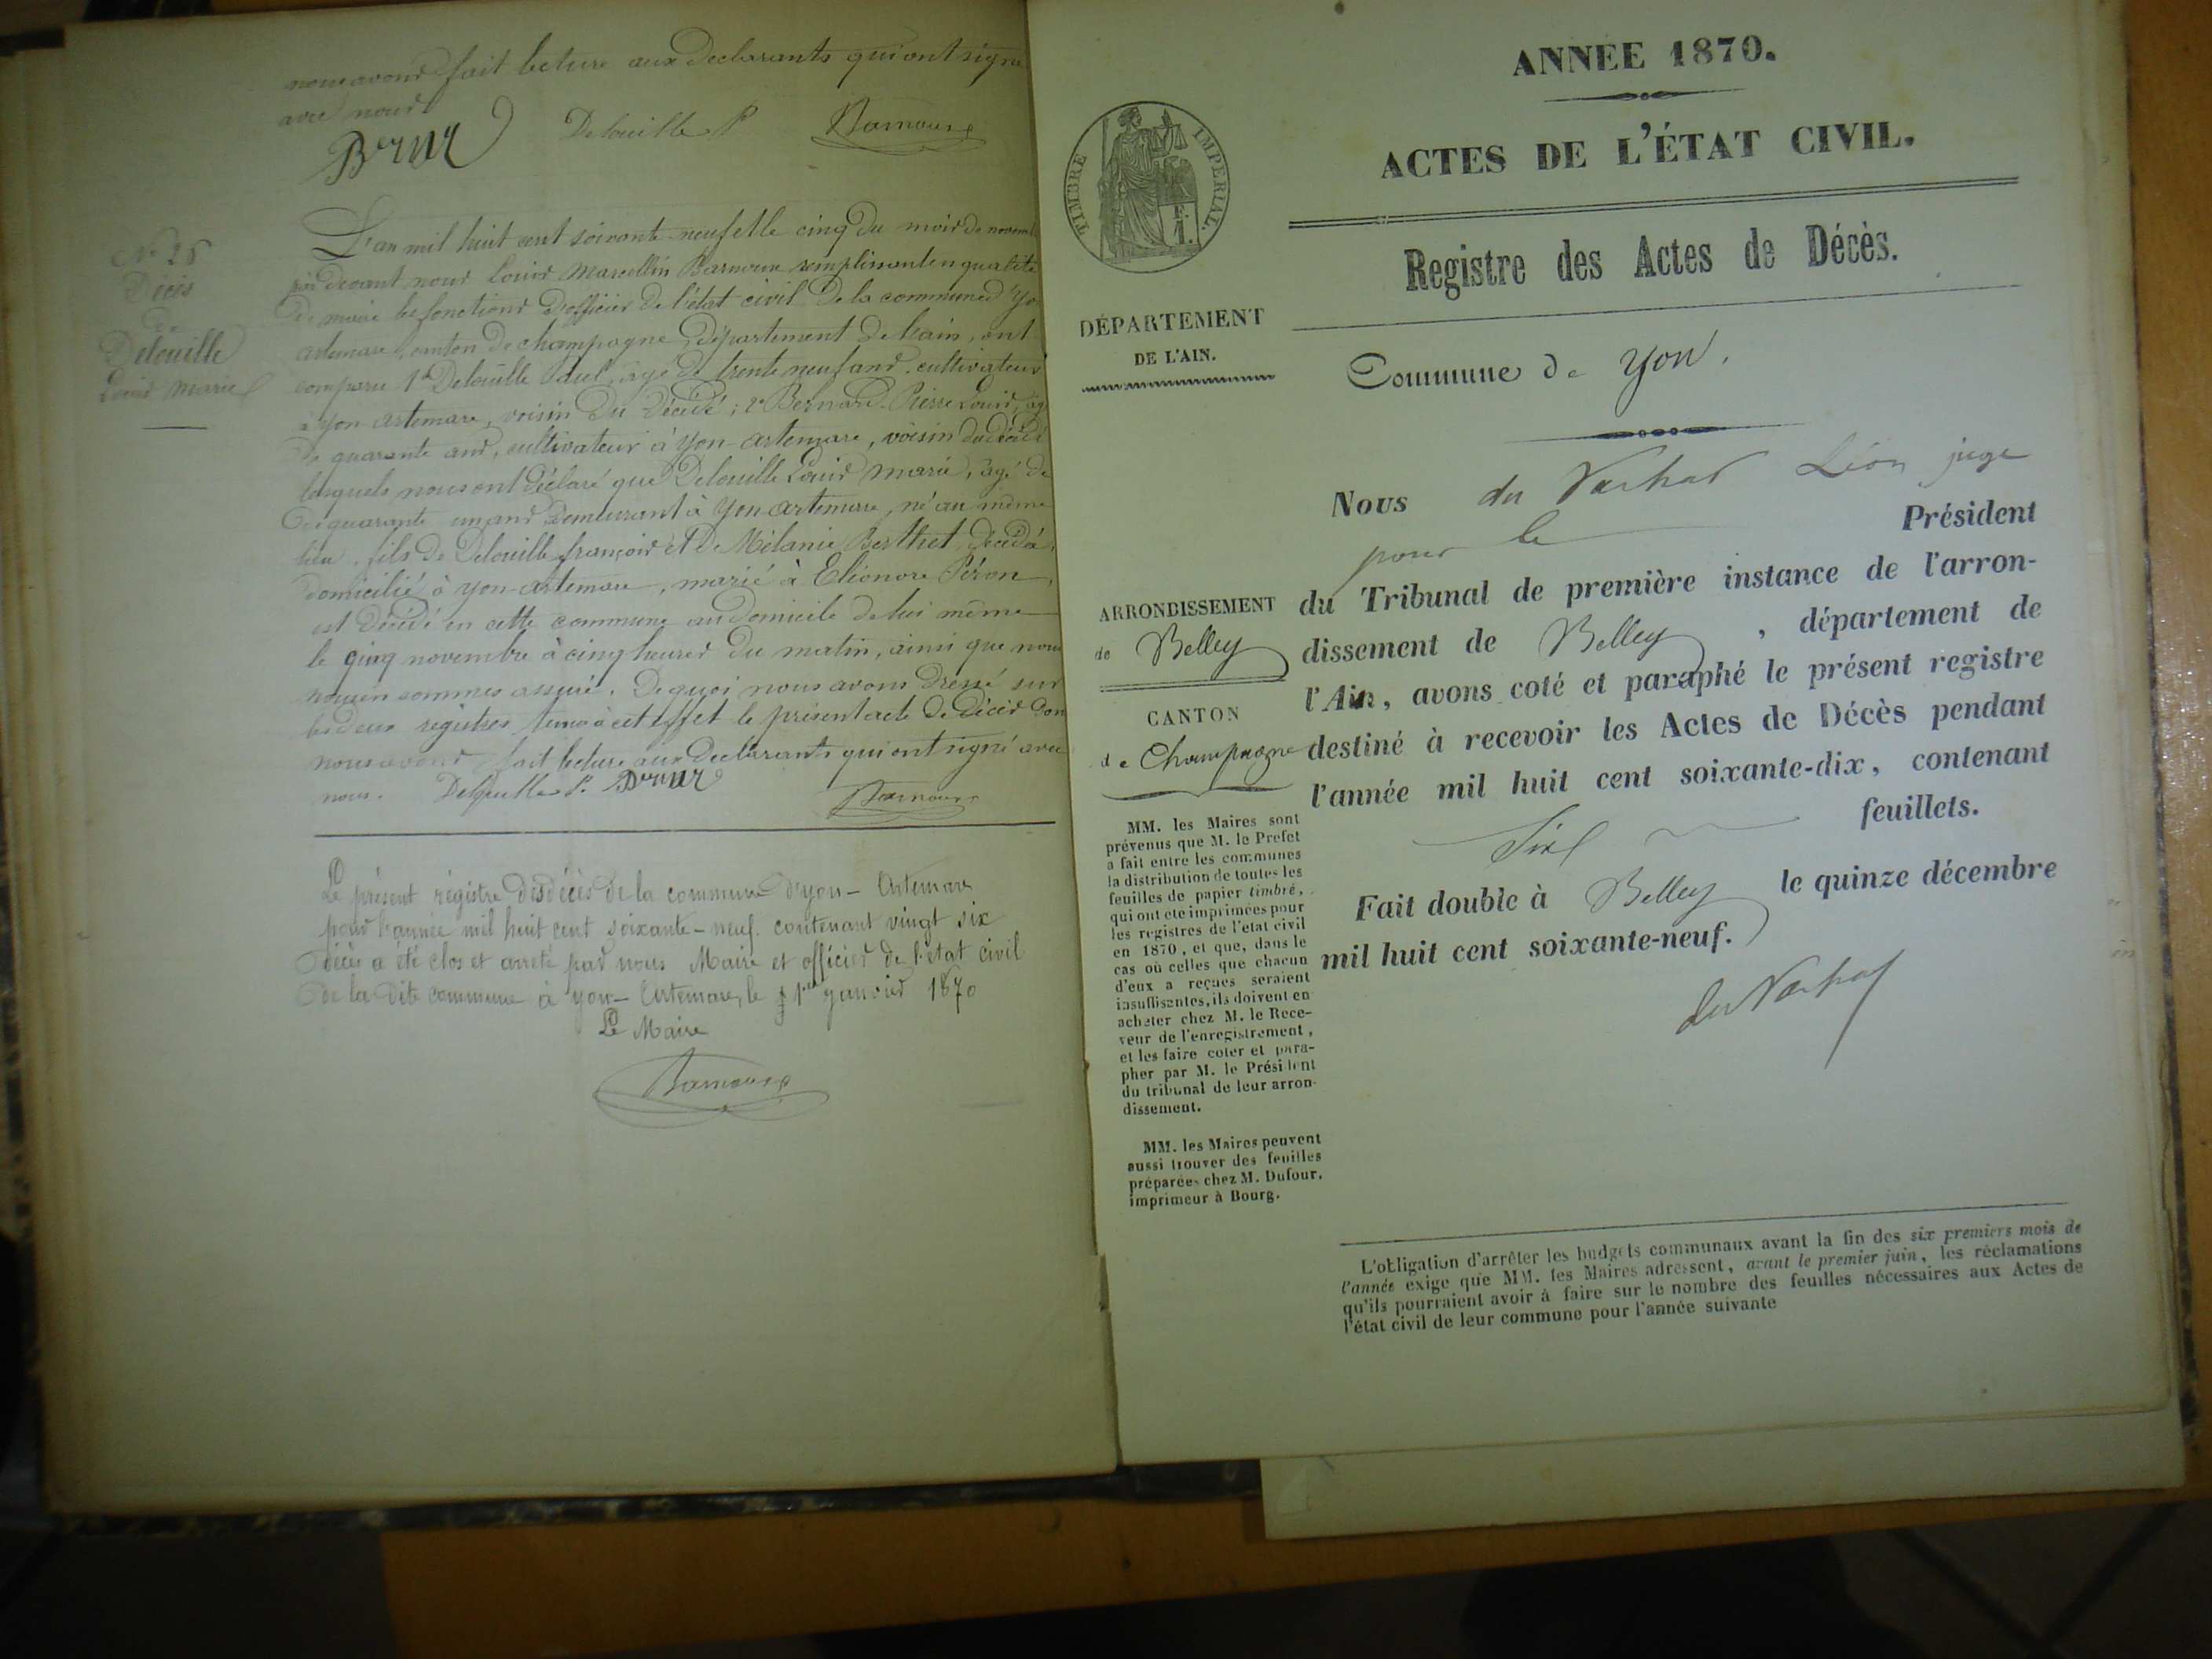 nous avons fait lecture aux Declarants qui ont signé
avec nous
Delouille P
Nº 26
Décès
de
Delouille
Louis Marie
L'an mil huit cent soixante-neuf et le cinq du mois de novemb
par devant nous Louis Marcellin Barnoux remplissant en qualité
De maire les fonctions d'officier de l'état civil De la commune d'Yo
artemare, canton de champagne, département de l'ain, ont
comparu 1º Delouille Paul, agé de trente neuf ans, cultivateur
à Yon artemare, voisin du Décédé; 2º Bernard Pierre Louis, ag
De quarante ans, cultivateur à Yon-artemare, voisin du décédé
lesquels nous ont déclaré que Delouille Louis Marie, agé de
De quarante un ans Demeurant à Yon artemare, né au même
lieu, fils de Delouille françois et De Mélanie Berthet, décédé
domicilié à yon-artemare, marié à Eléonore Péron,
est Décédé en cette commune au Domicile de lui même
le cinq novembre à cinq heures du matin, ainsi que nous
nous en sommes assuré. De quoi nous avons Dressé sur
les deux registres tenus à cet effet le présent acte de Décès Don
nous avons fait lecture aux Declarants qui ont signé avec
nous. Delouille P.
Le présent régistre des décès de la commune d'Yon-Artemare
pour l'année mil huit cent soixante-neuf contenant vingt six
décès a été clos et arreté par nous Maire et officier de l'état civil
de la dite commune à Yon-Artemare, le 1er janvier 1870
Le Maire
Barnoux
ANNÉE 1870.
ACTES DE L'ÉTAT CIVIL.
TIMBRE IMPERIAL.
F.
1.
Registre des Actes de Décès.
DÉPARTEMENT
DE L'AIN.
Commune de Yon.
Nous du Vachat Léon juge
pour le Président
du Tribunal de première instance de l'arron-
dissement de Belley, département de
l'Ain, avons coté et paraphé le présent registre
destiné à recevoir les Actes de Décès pendant
l'année mil huit cent soixante-dix, contenant
Six feuillets.
Fait double à Belley le quinze décembre
mil huit cent soixante-neuf.
du Vachat
ARRONDISSEMENT
de Belley
CANTON
de Champagne
MM. les Maires sont
prévenus que M. le Prefet
a fait entre les communes
la distribution de toutes les
feuilles de papier timbré,
qui ont été imprimées pour
les registres de l'état civil
en 1870, et que, dans le
cas où celles que chacun
d'eux a reçues seraient
insuffisantes, ils doivent en
acheter chez M. le Rece-
veur de l'enregistrement,
et les faire coter et para-
pher par M. le Président
du tribunal de leur arron-
dissement.
MM. les Maires peuvent
aussi trouver des feuilles
préparées chez M. Dufour,
imprimeur à Bourg.
L'obligation d'arrêter les budgets communaux avant la fin des six premiers mois de
l'année exige que MM. les Maires adressent, avant le premier juin, les réclamations
qu'ils pourraient avoir à faire sur le nombre des feuilles nécessaires aux Actes de
l'état civil de leur commune pour l'année suivante